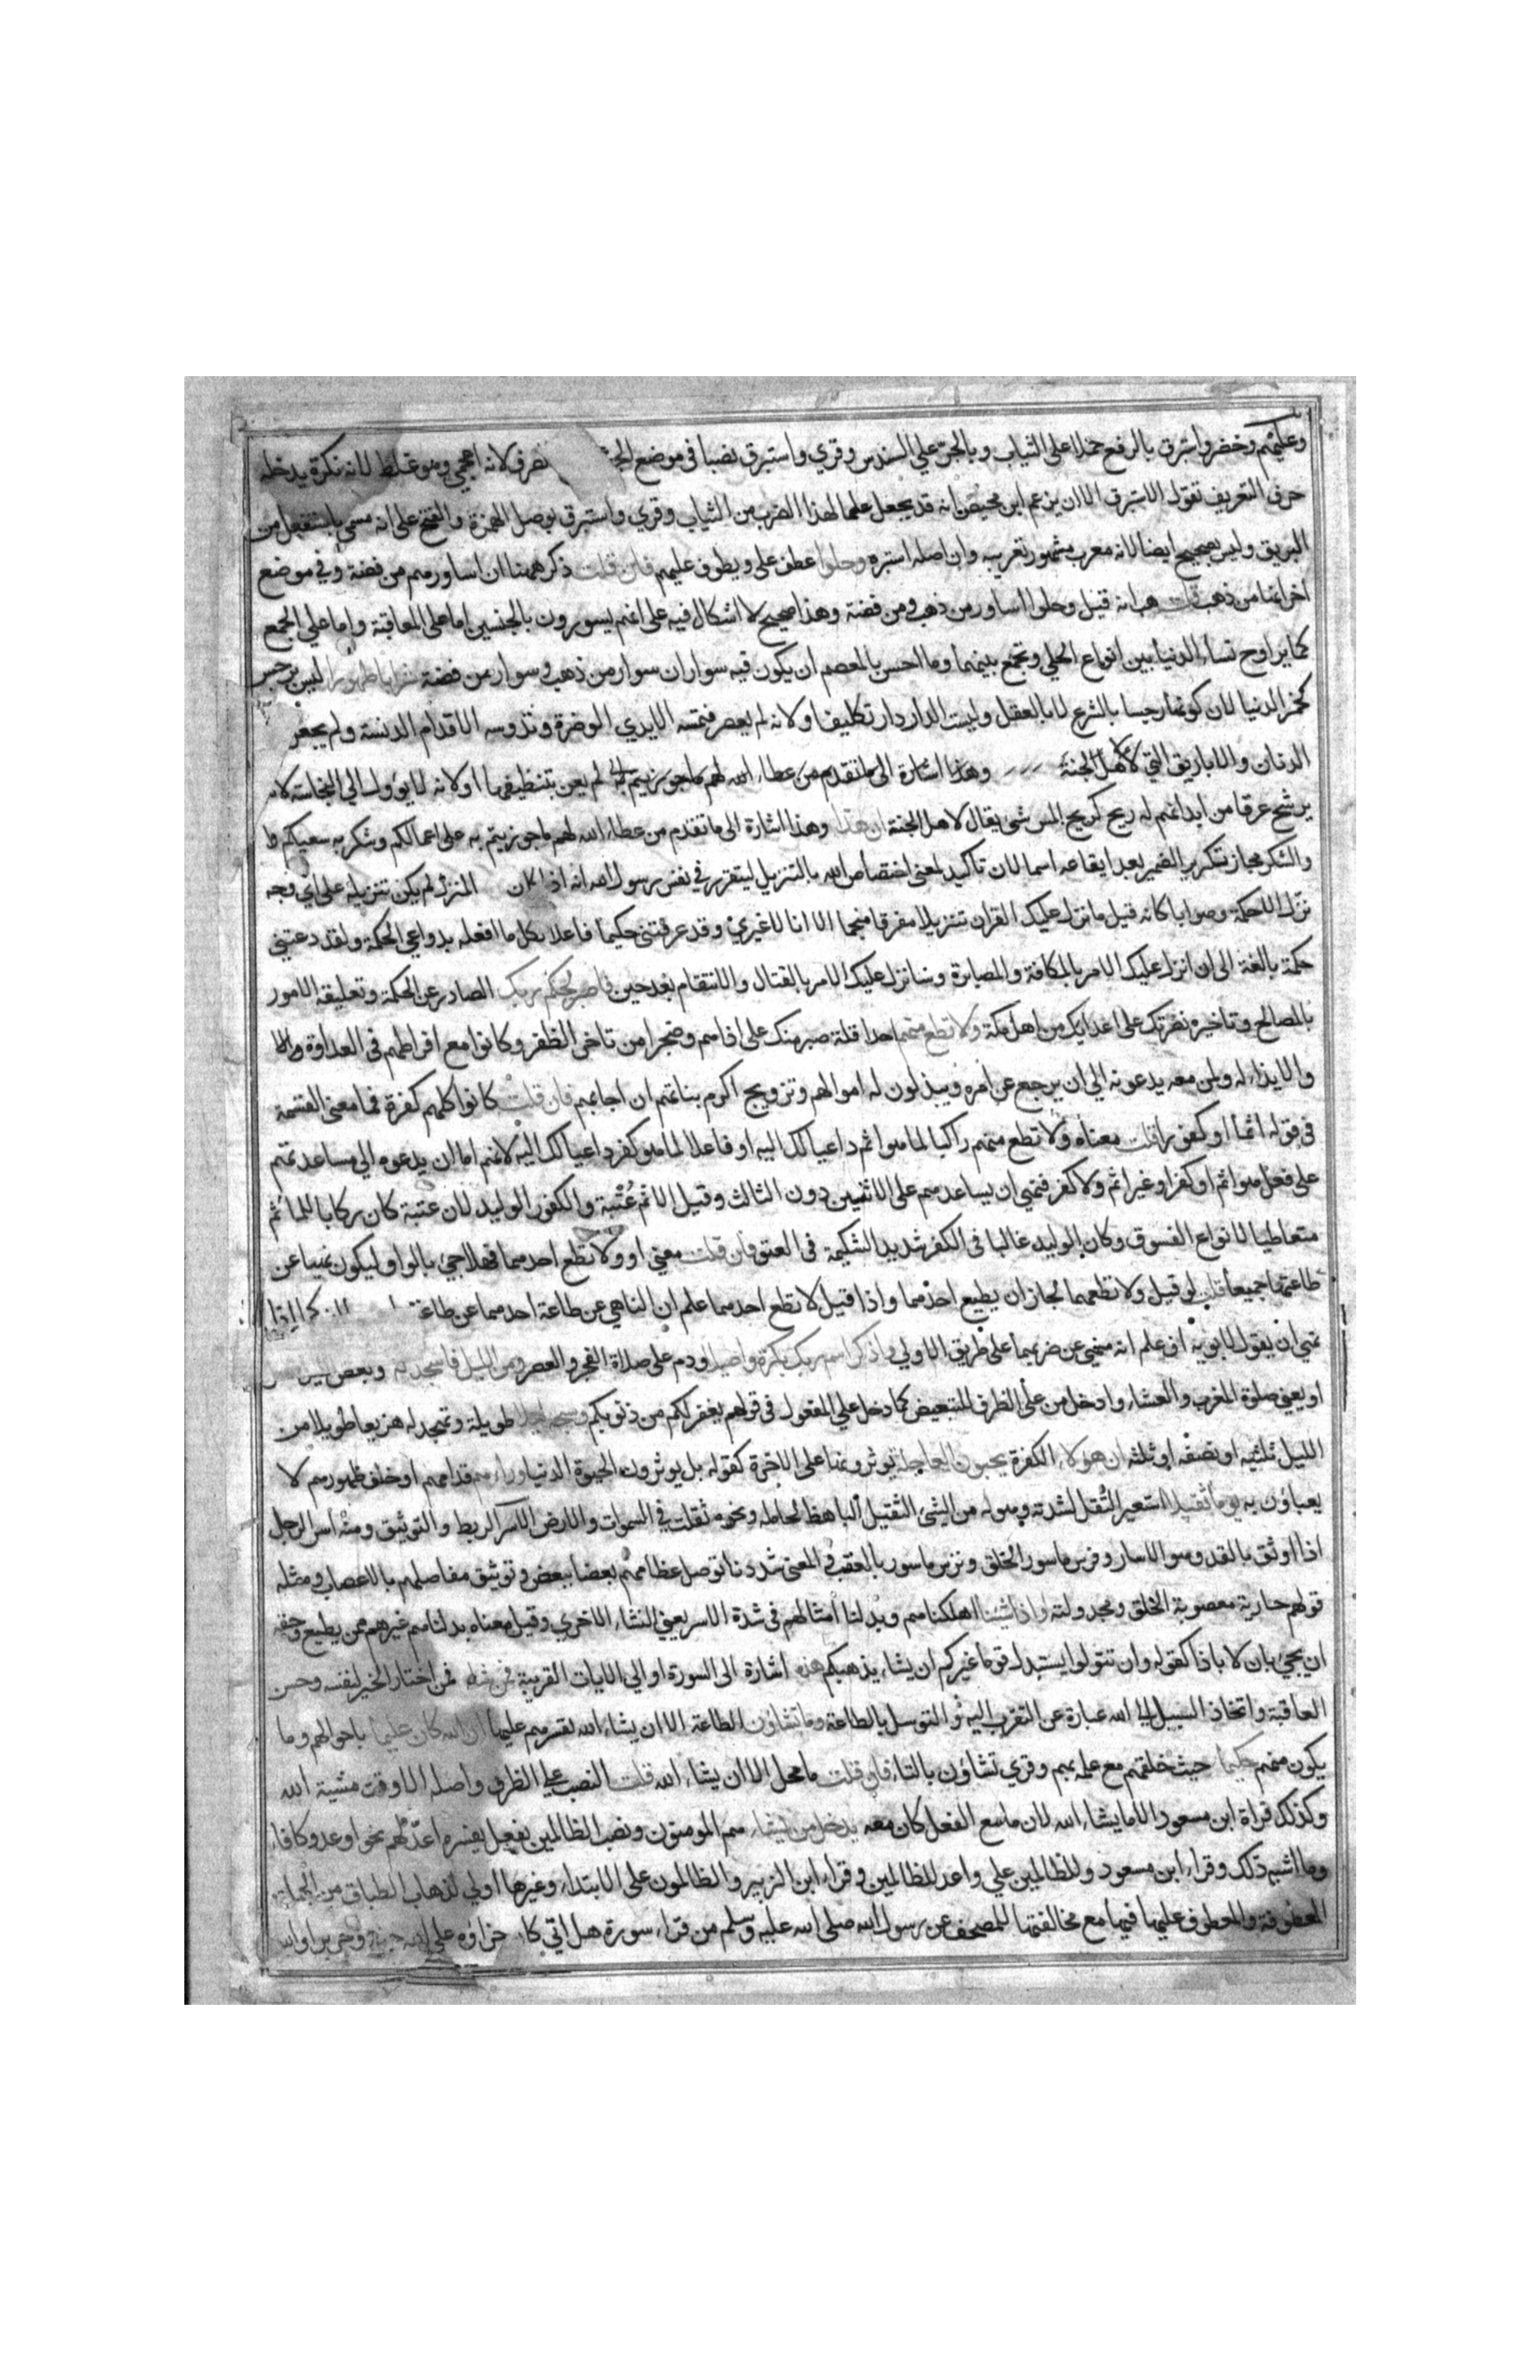 وعليهم وخضر واستبرق بالرفع حملا على الثياب وبالجر علي السندس وقري واستبرق نصبا في موضع الجر لانه اعجمي وهو غلط لانه نكرة يدخله
حرف التعريف تقول الاستبرق الا ان يزعم ابن محيصن انه قد يجعل علما لهذا الضرب من الثياب وقري واستبرق بوصل الهمزة والفتح على انه مسمى باستفعل من
البريق وليس بصحيح ايضا لانه معرب مشهور تعريبه وان اصله استبره وحلوا عطف على ويطوف عليهم فان قلت ذكر ههنا ان اساورهم من فضة وفي موضع
اخر انها من ذهب قلت هب انه قيل وحلوا اساور من ذهب ومن فضة وهذا صحيح لا اشكال فيه على انهم يسورون بالجنسين اما على المعاقبة واما علي الجمع
كما يراوح نساء الدنيا بين انواع الحلي وتجمع بينهما وما احسن بالمعصم ان يكون فيه سواران سوار من ذهب وسوار من فضة شرابا طهورا ليس برجس
كخمر الدنيا لان كونها رجسا بالشرع لا بالعقل وليست الدار دار تكليف او لانه لم يعصر فتمسه الايدي الوضرة وتدوسه الاقدام الدنسة ولم يجعل
الدنان والاباريق التي لاهل الجنة وهذا اشارة الى ما تقدم من عطاء الله لهم ما جوزيتم به لم يعن بتنظيفها او لانه لا يؤول الي النجاسة لانه
يرشح عرقا من ابدانهم له ريح كريح المسك يقال لاهل الجنة ان هذا وهذا اشارة الى ما تقدم من عطاء الله لهم ما جوزيتم به على اعمالكم وشكر به سعيكم
والشكر مجاز تكرير الضمير بعد ايقاعه اسما لان تاكيد لمعنى اختصاص الله بالتنزيل ليتقرر في نفس رسول الله انه اذا كان المنزل لم يكن تنزيله على اي وجه
نزل الا حكمة وصوابا كانه قيل ما نزل عليك القران تنزيلا مفرقا منجما الا انا لا غيري وقد عرفتني حكيما فاعلا لكل ما افعله بدواعي الحكمة ولقد دعتني
حكمة بالغة الى ان انزل عليك الامر بالمكافة والمصابرة وسانزل عليك الامر بالقتال والانتقام بعد حين فاصبر لحكم ربك الصادر عن الحكمة وتعليقه الامور
بالمصالح وتاخيره نصرتك على اعدايك من اهل مكة ولا تطع منهم احدا قلة صبر منك على اذاهم وضجرا من تاخر الظفر وكانوا مع افراطهم في العداوة
والايذاء له ولمن معه يدعونه الي ان يرجع عن امره ويبذلون له اموالهم وتزويج اكرم بناتهم ان اجابهم فان قلت كانوا كلهم كفرة فما معنى القسمة
في قوله اثما او كفورا قلت معناه ولا تطع منهم راكبا لما هو اثم داعيا لك اليه او فاعلا لما هو كفر داعيا لك اليه لانهم اما ان يدعوه الي مساعدتهم
على فعل هو اثم او كفر او غير اثم ولا كفر فنهي ان يساعدهم على الاثنين دون الثالث وقيل الاثم عتبة والكفور الوليد لان عتبة كان ركابا للماثم
متعاطيا لانواع الفسوق وكان الوليد غالبا في الكفر شديد الشكيمة في العتو فان قلت معنى او ولا تطع احدهما فهلا جيء بالواو ليكون نهيا عن
طاعتهما جميعا قلت لو قيل ولا تطعهما لجاز ان يطيع احدهما واذا قيل لا تطع احدهما علم ان الناهي عن طاعة احدهما عن طاعة
نهي ان يقول لابويه اف علم انه منهي عن ضربهما على طريق الاولي واذكر اسم ربك بكرة واصيلا ودم على صلاة الفجر والعصر ومن الليل فاسجد له وبعض الليل
او يعني صلوة المغرب والعشاء وادخل من على الظرف للتبعيض كما دخل علي المفعول في قولهم يغفر لكم من ذنوبكم وسبحه ليلا طويلا وتهجد له هزيعا طويلا من
الليل ثلثيه او نصفه او ثلثه ان هؤلاء الكفرة يحبون العاجلة يوثرونها على الاخرة كقوله بل يوثرون الحيوة الدنيا وراءهم قدامهم او خلف ظهورهم لا
يعباون به يوما ثقيلا استعير الثقل لشدته وهوله من الشئ الثقيل الباهظ لحامله ونحوه ثقلت في السموات والارض الاسر الربط والتوثيق ومنه اسر الرجل
اذا اوثق بالقد وهو الاسار وفرس ماسور الخلق وترس ماسور بالعقب والمعنى شددنا توصل عظامهم بعضا ببعض وتوثيق مفاصلهم بالاعصاب ومثله
قولهم جارية معصوبة الخلق ومجدولته واذا شئنا اهلكناهم وبدلنا امثالهم في شدة الاسر يعني النشاء الاخري وقيل معناه بدلنا منهم غيرهم ممن يطيع وحقه
ان يجئ بان لا باذا كقوله وان تتولوا يستبدل قوما غيركم ان يشاء يذهبكم هذه اشارة الى السورة او الي الايات القريبة فمن شاء فمن اختار الخير لنفسه وحسن
العاقبة واتخاذ السبيل الي الله عبارة عن التقرب اليه والتوسل بالطاعة وما تشاؤن الطاعة الا ان يشاء الله لقسرهم عليها ان الله كان عليما باحوالهم وما
يكون منهم حكيما حيث خلقهم مع علمه بهم وقري تشاؤن بالتاء فان قلت ما محل الا ان يشاء الله قلت النصب علي الظرف واصله الا وقت مشية الله
وكذلك قراة ابن مسعود الا ما يشاء الله لان ما مع الفعل كان معه يدخل من يشاء هم المومنون ونصب الظالمين بفعل يفسره اعد لهم نحو اوعد وكافا
وما اشبه ذلك وقراء ابن مسعود وللظالمين علي واعد للظالمين وقراء ابن الزبير والظالمون على الابتداء وغيرها اولي لذهاب الطباق من الجملة
المعطوفة والمعطوف عليها فيها مع مخالفتها للمصحف عن رسول الله صلى الله عليه وسلم من قراء سورة هل اتي كان جزاؤه علي الله جنة وحريرا والله